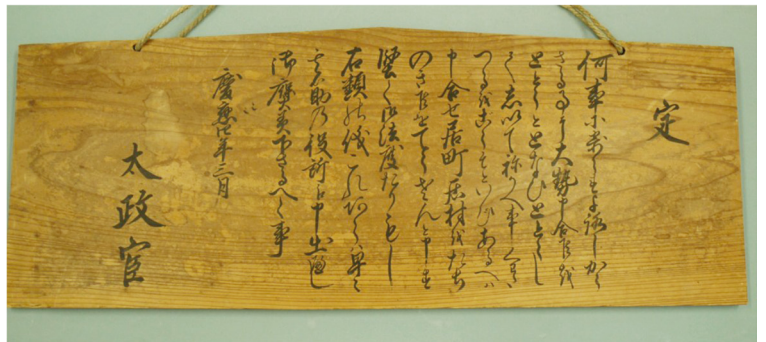 定
何事によらすよろしから
さる事に大勢申合候を
ととうととなひととうし
て志いて祢かへ事くはた
つるをこうそといひあるへハ
申合せ居町居村をたち
のき候をてうさんと申
堅く御法度たりもし
右類の儀これあらハ早々
其筋の役所へ申出へし
御褒美下さるへく事
慶應四年三月
太政官